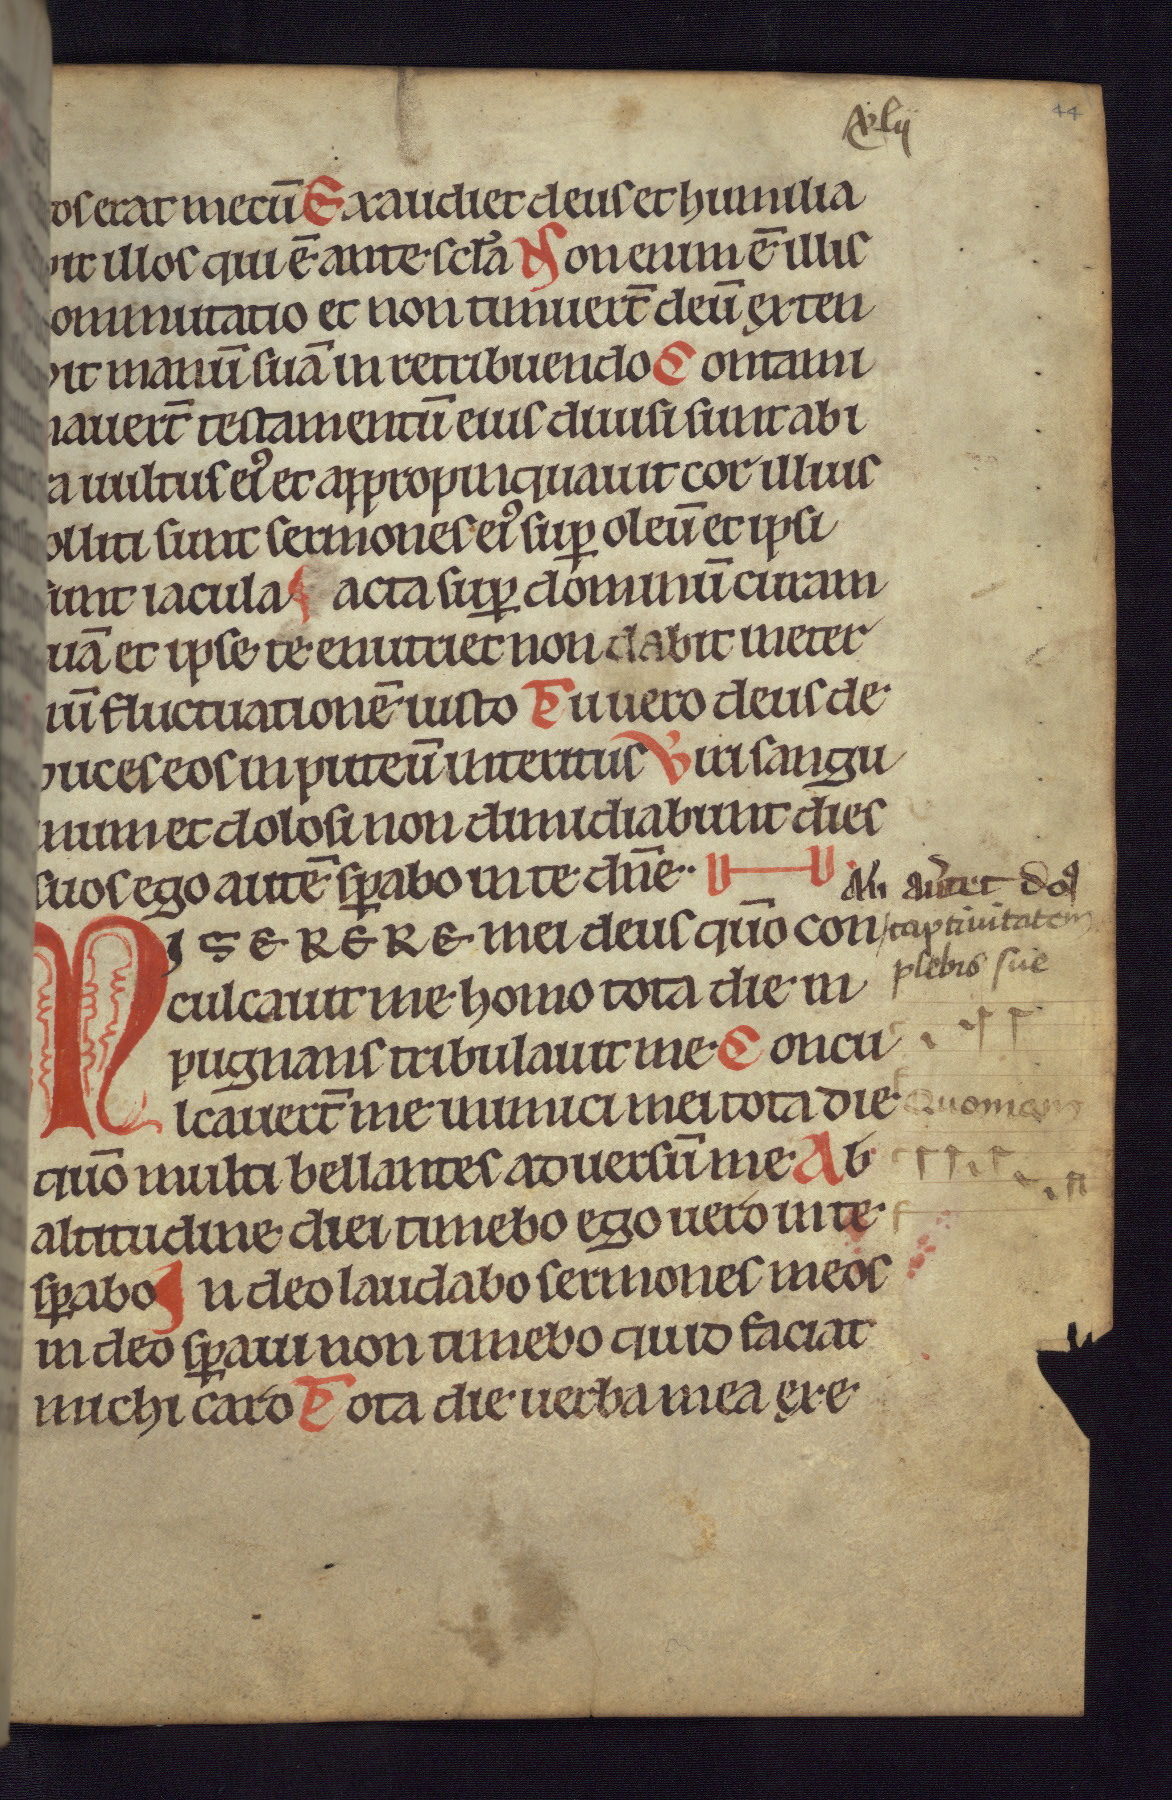 xlij
44
os erat mecū Exaudiet deus et humilia
bit illos qui ē ante sclā Non enim ē illis
commutatio et non timuert̄ deū exten
dit manū suā in retribuendo Contami
nauert̄ testamentū eius diuisi sunt ab i
ra uultus ei᾿ et appropinquauit cor illius
olliti sunt sermones ei᾿ sup oleū et ipsi
sunt iacula Iacta sup dominū curam
tuā et ipse te enutriet non dabit in eter
nū fluctuationē iusto Tu uero deus de
duces eos in puteū interitus Viri sangu
inum et dolosi non dimidiabunt dies
suos ego autē sperabo in te dn̄e.
MISERERE mei deus quō con
culcauit me homo tota die in
pugnans tribulauit me Concu
lcauert̄ me inimici mei tota die
quō multi bellantes aduersū me Ab
altitudine diei timebo ego uero in te
sperabo In deo laudabo sermones meos
in deo speraui non timebo quid faciat
michi caro Tota die uerba mea exe
captiuitatem
plebis sue
Quoniam